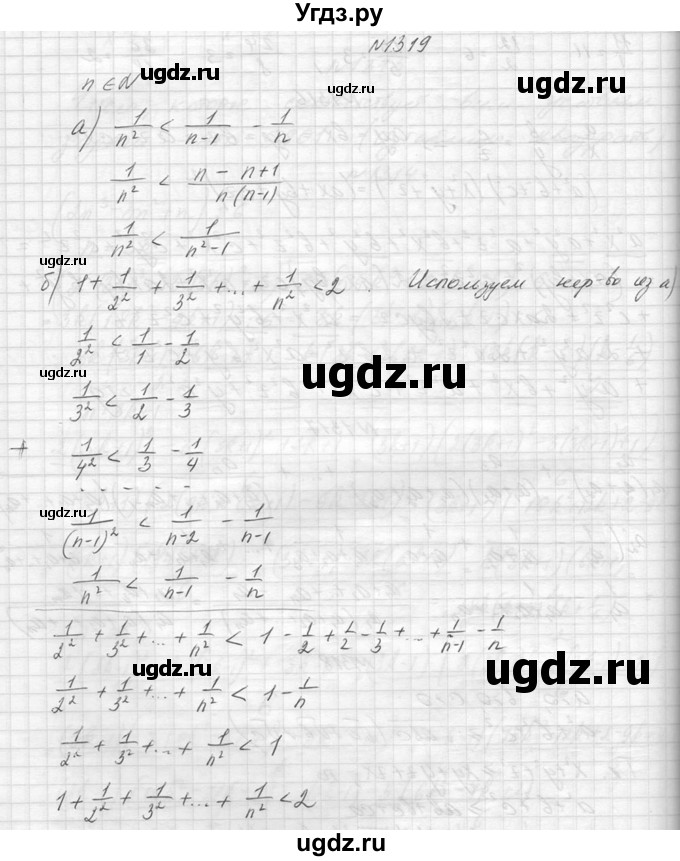 Угдз.ру
№1319
n ∈ N
ugdz.ru
а) 1/n² < 1/(n-1) - 1/n
ugdz.ru
1/n² < (n - n+1)/(n(n-1))
ugdz.ru
1/n² < 1/(n²-1)
б) 1+ 1/2² + 1/3² +...+ 1/n² <2. Используем нер-во из а)
1/2² < 1/1 - 1/2
ugdz.ru
ugdz.ru
1/3² < 1/2 - 1/3
+ 1/4² < 1/3 - 1/4
- - - - -
ugdz.ru
1/(n-1)² < 1/(n-2) - 1/(n-1)
1/n² < 1/(n-1) - 1/n
1/2² + 1/3² +...+ 1/n² < 1 - 1/2 + 1/2 - 1/3 +...+ 1/(n-1) - 1/n
ugdz.ru
ugdz.ru
1/2² + 1/3² +...+ 1/n² < 1 - 1/n
ugdz.ru
1/2² + 1/3² +...+ 1/n² < 1
1+ 1/2² + 1/3² +...+ 1/n² <2
ugdz.ru